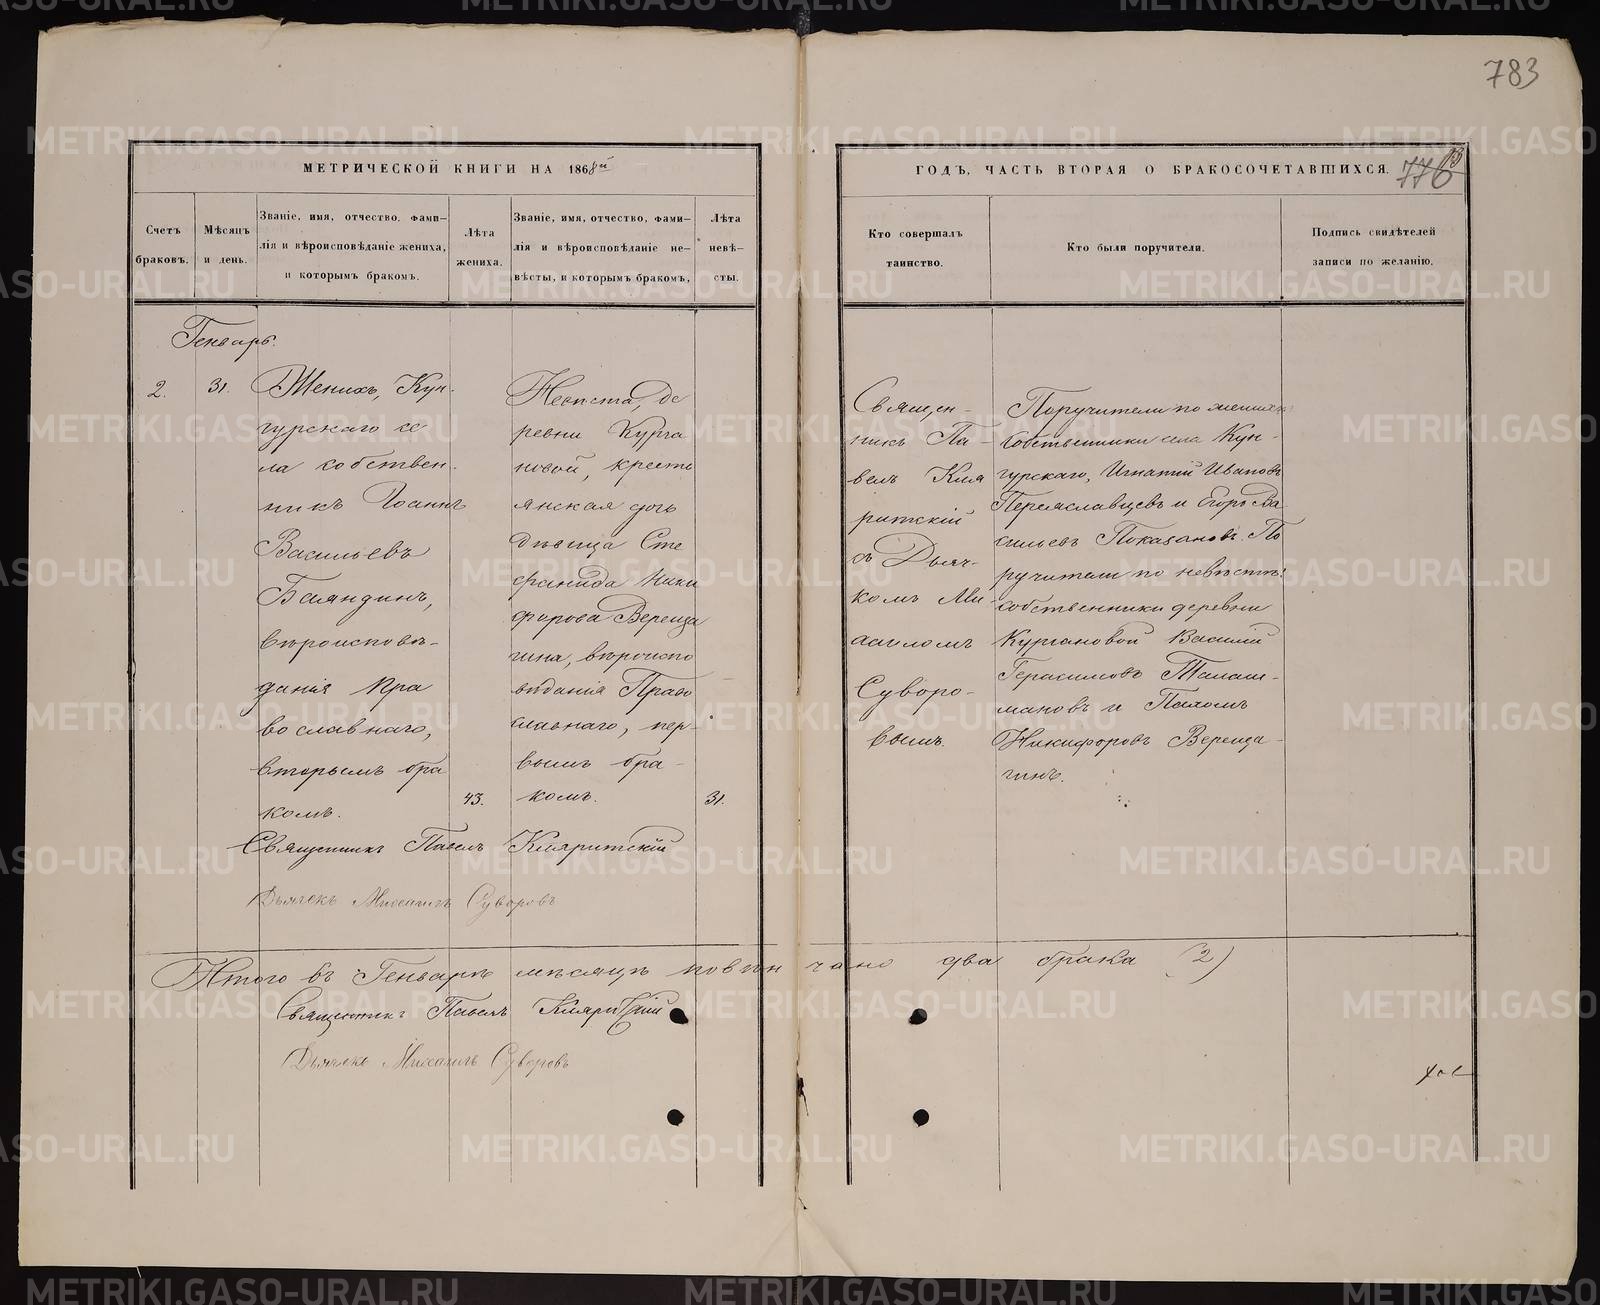 783
МЕТРИЧЕСКОЙ КНИГИ НА 1868й
ГОДЪ, ЧАСТЬ ВТОРАЯ О БРАКОСОЧЕТАВШИХСЯ.
776
13
Счетъ
браковъ.
Мѣсяцъ
и день.
Званіе, имя, отчество, фами-
лія и вѣроисповѣданіе жениха,
и которымъ бракомъ.
Лѣта
жениха.
Званіе, имя, отчество, фами-
лія и вѣроисповѣданіе не-
вѣсты, и которымъ бракомъ,
Лѣта
невѣ-
сты.
Кто совершалъ
таинство.
Кто были поручители.
Подпись свидѣтелей
записи по желанію.
Генварь.
2.
31.
Женихъ, Кун-
гурскаго се
ла собствен-
никъ Іоаннъ
Васильевъ
Баландинъ,
вѣроисповѣ-
данія Пра
вославнаго,
вторымъ бра
комъ.
43.
Невѣста, де
ревни Курга
новой, кресть
янская дочь
дѣвица Сте
фанида Ники
форова Вереща
гина, вѣроиспо
вѣданія Право
славнаго, пер-
вымъ бра-
комъ.
31.
Священ-
никъ Па-
велъ Кля
ритскій
съ Дьяч-
комъ Ми-
хаиломъ
Суворо-
вымъ.
Поручители по женихѣ
собственники села Кун-
гурскаго, Игнатій Ивановъ
Переяславцевъ и Егоръ Ва-
сильевъ Показановъ. По
ручители по невѣстѣ:
собственники деревни
Кургановой Василій
Герасимовъ Талаш-
мановъ и Пахомъ
Никифоровъ Вереща-
гинъ.
Священникъ Павелъ Кляритскій
Дьячекъ Михаилъ Суворовъ
Итого въ Генварѣ мѣсяцѣ повѣнчано два брака (2)
Священникъ Павелъ Кляритскій
Дьячекъ Михаилъ Суворовъ